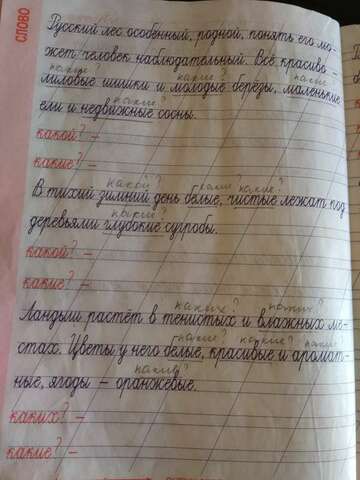 СЛОВО
Русский лес особенный, родной, понять его мо-
жет человек наблюдательный. Всё красиво –
какие? какие? какие?
лиловые шишки и молодые берёзы, маленькие
какие?
ели и недвижные сосны.
какой? –
какие? –
какой? какие? какие?
В тихий зимний день белые, чистые лежат под
какие?
деревьями глубокие сугробы.
какой? –
какие? –
каких? каких?
Ландыш растёт в тенистых и влажных ме-
какие? какие? какие?
стах. Цветы у него белые, красивые и аромат-
какие?
ные, ягоды – оранжевые.
каких? –
какие? –